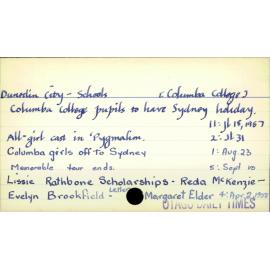 Dunedin City - Schools (Columba College)
Columba College pupils to have Sydney holiday.
11: Jl 15, 1957
All-girl cast in 'Pygmalion. 2: Jl 31
Columba girls off to Sydney 1: Aug 23
Memorable tour ends. 5: Sept 10
Lissie Rathbone Scholarships - Reda McKenzie -
Evelyn Brookfield - Letter Margaret Elder 4: Apr 2, 1958
OTAGO DAILY TIMES